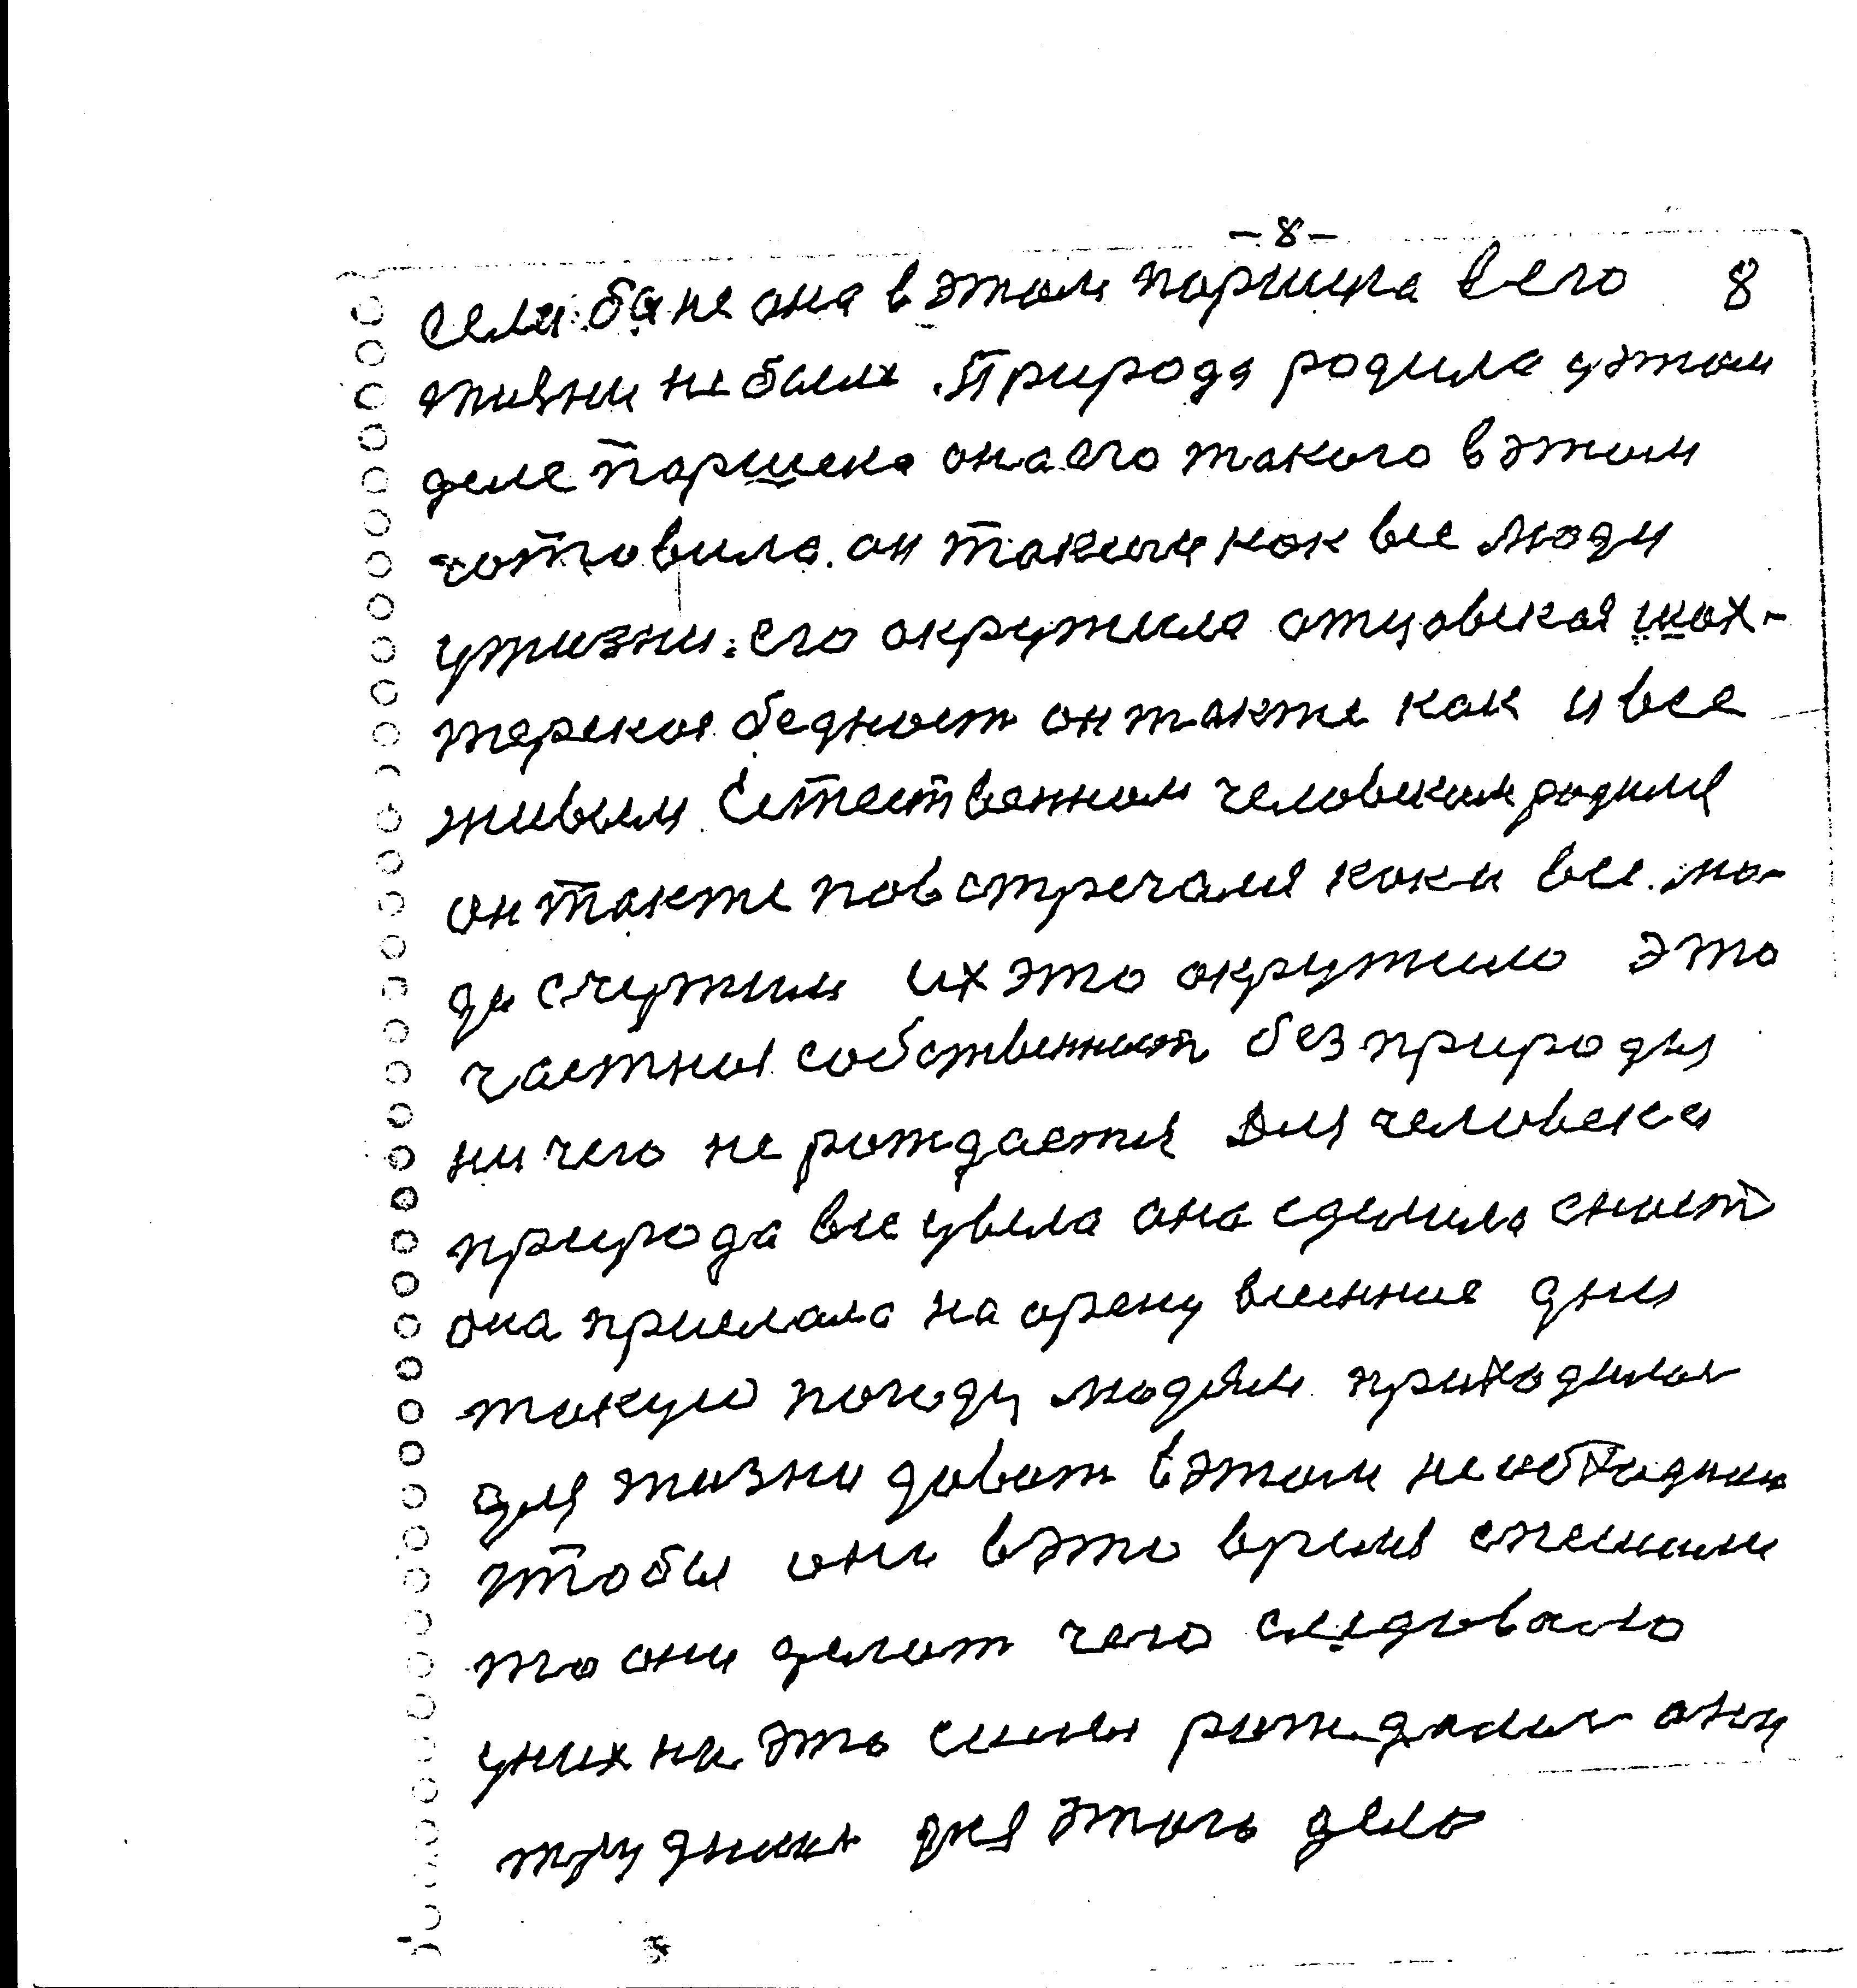 -8-
если бы не она в этом поршека в его 8
жизни не было. Природа родила у этом
деле поршека она его такого в этом
готовила. он таким как все люди
у жизни. его окружила отцовская шах-
терская бедност он также как и все
живым Естественном человеком родился
он также повстречался как и все лю-
ди с чужим их это окружило это
частная собственност без природы
ни чего не рождается Для человека
природа все увела она сделила
она прислала на арену
такую погоду людям приходилос
для жизни дават в этом необходимо
чтобы они в это время спешили
то они делают чего следовало
у них на это силы рождалис они
для этого дело